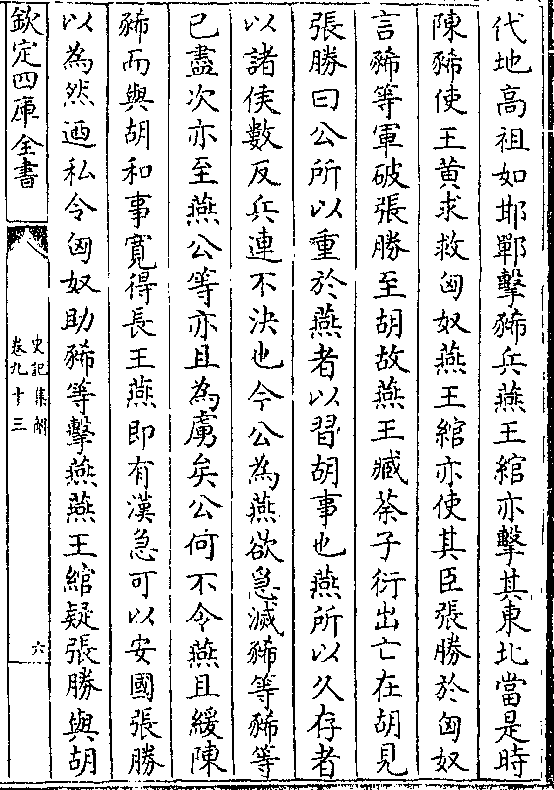 代地高祖如邯鄲擊豨兵燕王綰亦擊其東北當是時
陳豨使王黄求救匈奴燕王綰亦使其臣張勝於匈奴
言豨等軍破張勝至胡故燕王臧荼子衍出亡在胡見
張勝曰公所以重於燕者以習胡事也燕所以久存者
以諸侯數反兵連不決也今公為燕欲急滅豨等豨等
已盡次亦至燕公等亦且為虜矣公何不令燕且緩陳
豨而與胡和事寛得長王燕即有漢急可以安國張勝
以為然廼私令匈奴助豨等擊燕燕王綰疑張勝與胡
欽定四庫全書
史記集解
卷九十三
六